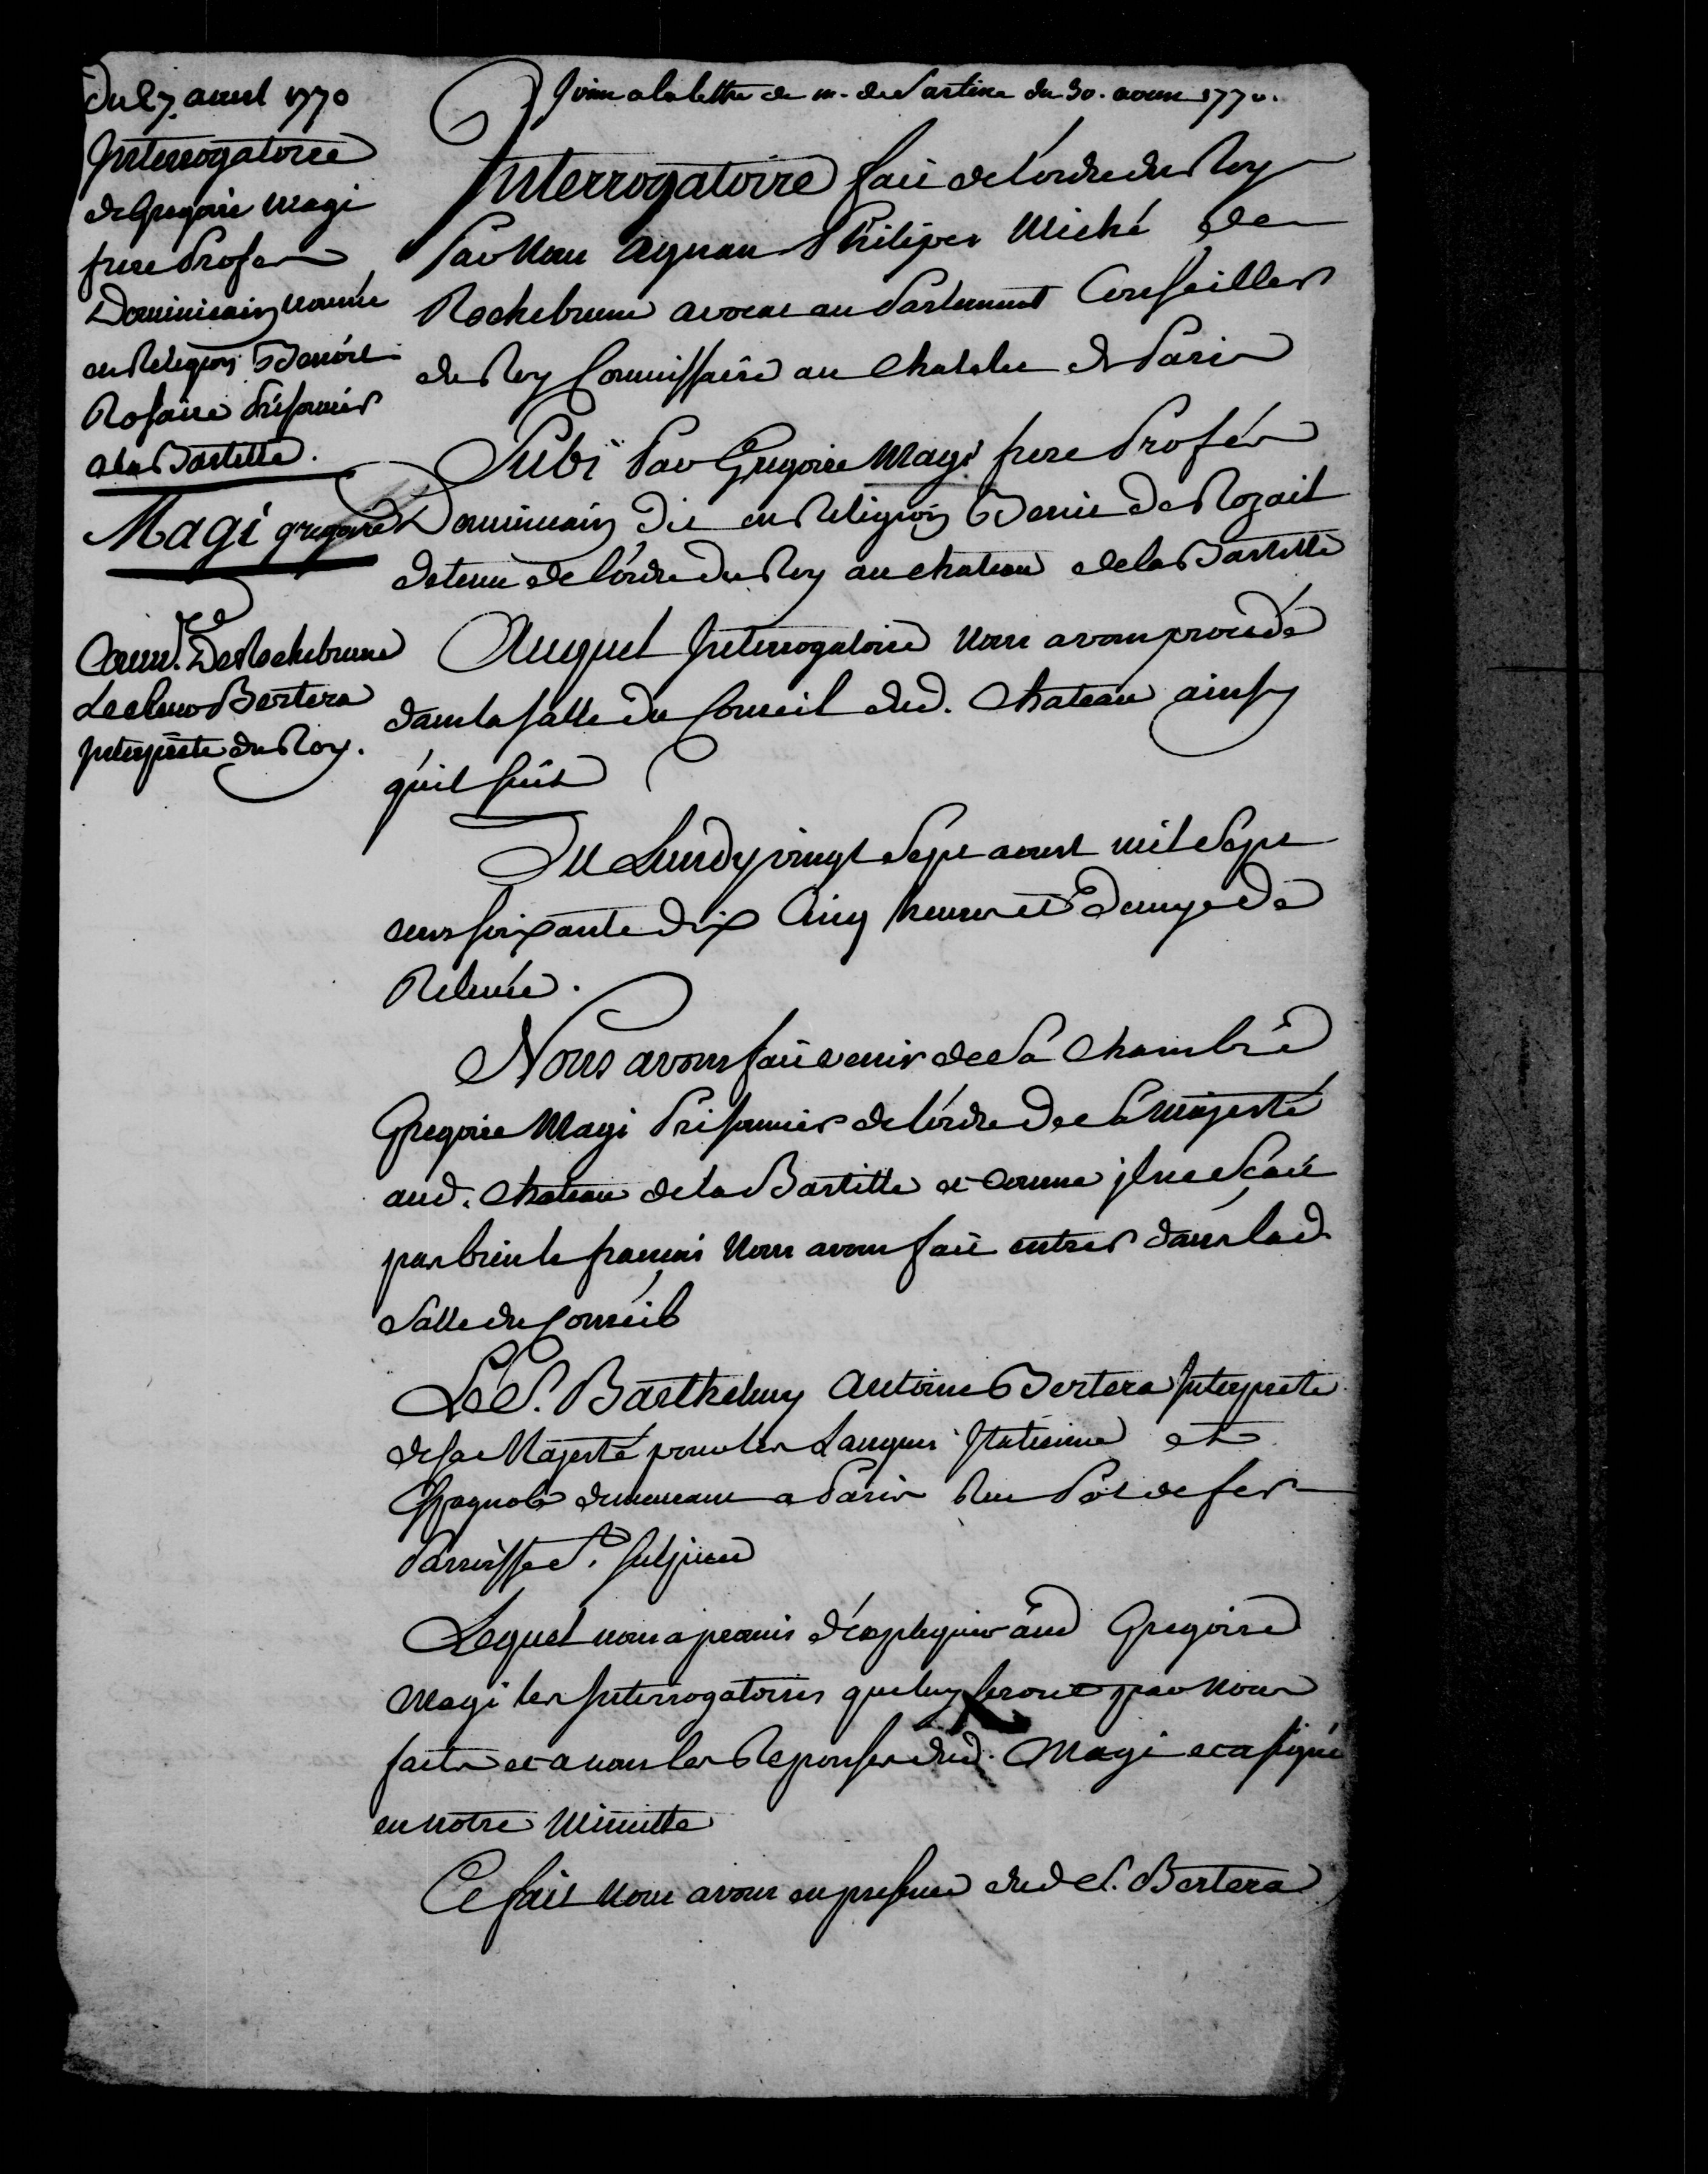 Du 27. aoust 1770
Interrogatoire
de Gregoire Magi
frere Profes
Dominicain nommé
en Religion Benoist
Rosaire Prisonnier
a la Bastille.
Magi gregoire
Comm.re De Rochebrune
Le sieur Bertera
Interprete du Roy.
Joint a la lettre de m. de Sartine du 30. aoust 1770.
Interrogatoire fait de l'ordre du Roy
Par Nous Agnan Philippes Miché de
Rochebrune avocat au Parlement Conseiller
du Roy Commissaire au Chatelet de Paris
Subi Par Gregoire Magi frere Profés
Dominicain dit en Religion Benoit de Rozait
detenu de l'ordre du Roy au chateau de la Bastille
Auquel Interrogatoire Nous avons procedé
dans la salle du Conseil dud. Chateau ainsy
qu'il suit
Du Lundy vingt Sept aoust mil Sept
cens soixante dix Cinq heures et Demye de
Relevée.
Nous avons fait venir de Sa Chambre
Gregoire Magi Prisonnier de l'ordre de Sa Majesté
aud. Chateau de la Bastille et comme il ne Scait
pas bien le francais Nous avons fait entrer dans lad.
Salle du Conseil
Le S. Barthelemy Antoine Bertera Interprete
de sa Majesté pour les Langues Italienne et
Espagnole demeurant a Paris Rue Pot de fer
Parroisse St. Sulpice
Lequel nous a promis d'expliquer aud Gregoire
Magi les Interrogatoires que luy seront par Nous
faits et a nous les Reponses dud. Magi et a signé
en notre Minutte
Ce fait Nous avons en presence dud S. Bertera